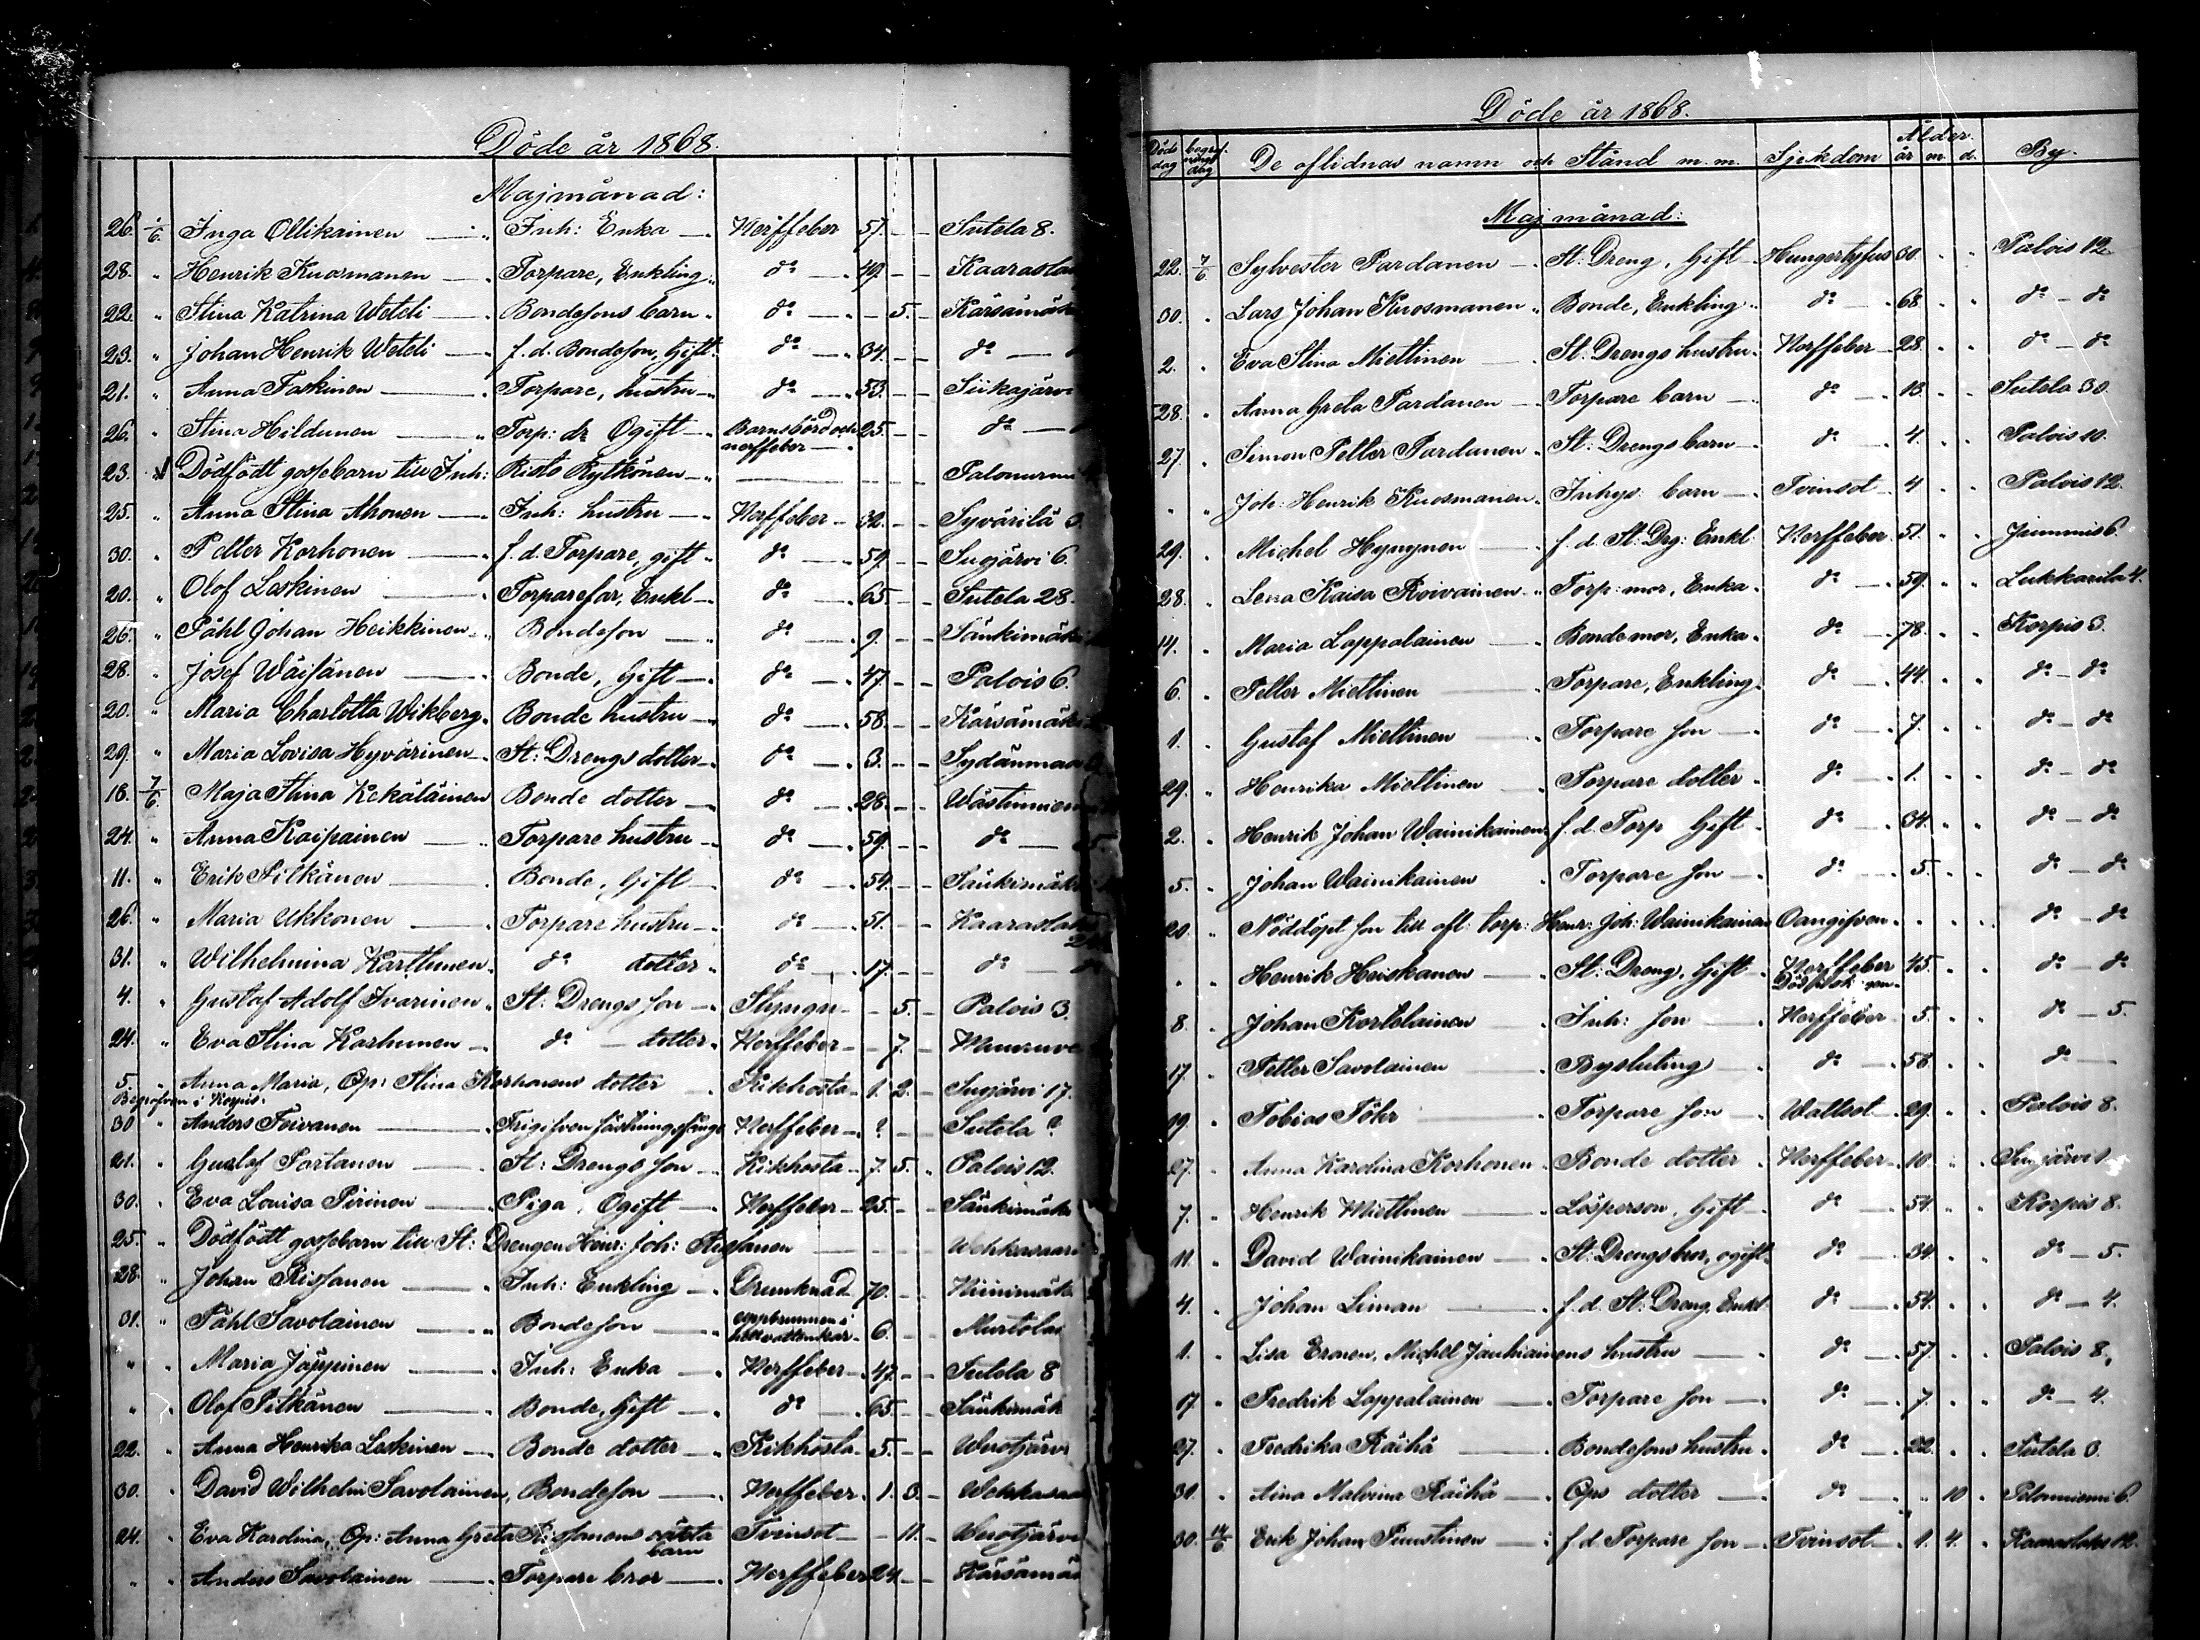 Döde år 1868.
Majmånad:
26. 1/6. Inga Ollikainen Inh: Enka Nerffeber 57. Sutela 8.
28. " Henrik Kuosmanen Torpare, Enkling do 49.
22. " Stina Katrina Weteli Bondesons barn do 5. Kärsämäk
23. " Johan Henrik Weteli f.d. Bondeson, Gift do 34. do
21. " Anna Taskinen Torpare, hustru do 53. Siikajärvi
26. " Stina Hildunen Torp: dr Ogift Barnsbörd och nerffeber 25. do
23. Dödfödt gossebarn till Inh: Risto Rytkönen
25. " Anna Stina Ahonen Inh: hustru Nerffeber 32. Syvärilä 3
30. " Petter Korhonen f.d. Torpare, gift do 59. Sugjärvi 6.
20. " Olof Leskinen Torparefar, Enkl do 65. Sutela 28.
26. " Påhl Johan Heikkinen Bondeson do 9. Sänkimäki
28. " Josef Wäisänen Bonde, Gift do 47. Palois 6.
20. " Maria Charlotta Wikberg Bonde hustru do 58. Kärsämäki
29. " Maria Lovisa Hyvärinen St: Drengs dotter do 3. Sydänmaa
18. 7/6. Maja Stina Kekäläinen Bonde dotter do 28.
24. " Anna Kaipainen Torpare hustru do 59. do
11. " Erik Pitkänen Bonde, Gift do 54. Sänkimäki
26. " Maria Ukkonen Torpare hustru do 51. Kaaraslah
31. " Wilhelmina Karttunen do dotter do 17. do
4. " Gustaf Adolf Ivarinen St: Drengs son Styngn 5. Palois 3.
24. " Eva Stina Karhunen do dotter Nerffeber 7. Muuruve
5. " Anna Maria, Op: Stina Korhonens dotter Kikhosta 1. 2. Sugjärvi 17.
Begrafven i Korpis.
30 " Anders Toivanen Frigifven fästningsfånge Nerffeber ? Sutela ?
21. " Gustaf Partanen St: Drengs son Kikhosta 7. 5. Palois 12.
30. " Eva Lovisa Pirinen Piga, Ogift Nerffeber 25. Sänkimäk
25. " Dödfödt gossebarn till St: Drengen Heinr: Joh: Rissanen Wehkasaari
28. " Johan Rissanen Inh: Enkling Drunknad 70. Niinimäk
31. " Påhl Savolainen Bondeson uppbrunnen i hett vattenkar 6. Murtolax
" " Maria Jäppinen Inh: Enka Nerffeber 47. Sutela 8
" " Olof Pitkänen Bonde, Gift do 65. Sänkimäk
22. " Anna Henrika Leskinen Bonde dotter Kikhosta 5.
30. " David Wilhelm Savolainen, Bondeson Nerffeber 1. 3. Wehkasaa
24. " Eva Karolina, Op: Anna Greta Rissanens oäkta barn Tvinsot 11.
" " Anders Savolainen Torpare bror Nerffeber 24. Kärsämä
Döde år 1868.
Döds dag begrafnings dag De aflidnas namn och Stånd m. m. Sjukdom Ålder. år m. d. By.
Majmånad:
22. 7/6 Sylvester Pardanen St: Dreng, Gift Hungertyfus 30. Palois 12
30. " Lars Johan Kuosmanen Bonde, Enkling do 68. do – do
2. " Eva Stina Miettinen St: Drengs hustru Nerffeber 28. do – do
28. " Anna Greta Pardanen Torpare barn do 13. Sutela 30.
27. " Simon Petter Pardanen St: Drengs barn do 4. Palois 10.
" " Joh: Henrik Kuosmanen Inhys barn Tvinsot 4 Palois 12.
29. " Michel Hynynen f.d. St: Drg: Enkl Nerffeber 51. Jummis 6.
28. " Lena Kaisa Roivainen Torp: mor, Enka do 59. Lukkarila 4.
14. " Maria Lappalainen Bonde mor, Enka do 78. Korpis 3.
6. " Petter Miettinen Torpare, Enkling do 44. do – do
1. " Gustaf Miettinen Torpare son do 7. do – do
29. " Henrika Miettinen Torpare dotter do 1. do – do
2. " Henrik Johan Wainikainen f.d. Torp Gift do 34. do – do
5. " Johan Wainikainen Torpare son do 5. do – do
20. " Nöddöpt son till afl: torp: Henr: Joh: Wainikainen Oangifven do – do
" " Henrik Heiskanen St: Dreng, Gift Nerffeber 45. do – do
8. " Johan Kortelainen Inh: son Nerffeber 5. do – 5.
17. " Petter Savolainen Bysluting do 58. do
19. " Tobias Töhr Torpare son Wattsot 29. Palois 8.
27. " Anna Karolina Korhonen Bonde dotter Nerffeber 10 Sugjärvi 1
7. " Henrik Miettinen Lösperson, Gift do 54. Korpis 8.
11. " David Wainikainen St: Drengs bror, ogift do 34. do – 5.
4. " Johan Liman f.d. St: Dreng Enkl do 54. do – 4.
1. " Lisa Eronen, Michel Jauhiainens hustru do 57. Palois 8.
17 " Fredrik Lappalainen Torpare son do 7. do – 4.
27. " Fredrika Räihä Bondesons hustru do 22. Sutela 3.
31. " Aina Malvina Räihä Ops dotter do 10
30. 14/6 Erik Johan Puustinen f.d. Torpare son Tvinsot 1. 4. Kaaraslaks 12.